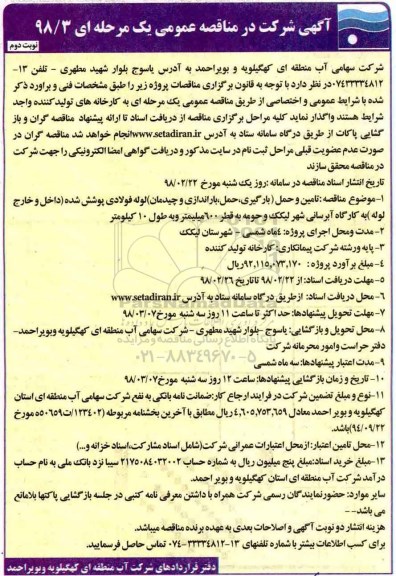 آگهی شرکت در مناقصه عمومی یک مرحله ای ۹۸/۳
نوبت دوم
شرکت سهامی آب منطقه ای کهگیلویه و بویراحمد به آدرس یاسوج بلوار شهید مطهری - تلفن ۱۳-
۰۷۴۳۳۳۴۸۱۲در نظر دارد با توجه به قانون برگزاری مناقصات پروژه زیر را طبق مشخصات فنی و براورد ذکر
شده با شرایط عمومی و اختصاصی از طریق مناقصه عمومی یک مرحله ای به کارخانه های تولیدکننده واجد
شرایط هستند واگذار نماید کلیه مراحل برگزاری مناقصه از دریافت اسناد تا ارائه پیشنهاد مناقصه گران و باز
گشایی پاکات از طریق درگاه سامانه ستاد به آدرس www.setadiran.irانجام خواهد شد مناقصه گران در
صورت عدم عضویت قبلی مراحل ثبت نام در سایت مذکور و دریافت گواهی امضا الکترونیکی را جهت شرکت
در مناقصه محقق سازند
تاریخ انتشار اسناد مناقصه در سامانه :روز یک شنبه مورخ ۹۸/۰۲/۲۲
۱-موضوع مناقصه:تامین و حمل (بارگیری،حمل،باراندازی و چیدمان)لوله فولادی پوشش شده (داخل و خارج
لوله )به کارگاه آبرسانی شهر لیکک وحومه به قطر ۶۰۰میلیمتر وبه طول ۱۰ کیلومتر
۲-مدت ومحل اجرای پروژه: ۴ماه شمسی - شهرستان لیکک
۳- پایه ورشته شرکت پیمانکاری: کارخانه تولید کننده
۴-مبلغ برآورد پروژه : ۹۲,۱۱۵,۰۷۳,۱۷۰ریال
۵-مهلت دریافت اسناد: از ۹۸/۰۲/۲۲ تاتاریخ ۹۸/۰۲/۲۶
۶- محل دریافت اسناد: ازطریق درگاه سامانه ستاد به آدرس www.setadiran.ir
۷- مهلت تحویل پیشنهادها: حداکثر تا ساعت ۱۱ روز سه شنبه مورخ۹۸/۰۳/۰۷
۸- محل تحویل و بازگشایی: یاسوج -بلوار شهید مطهری - شرکت سهامی آب منطقه ای کهگیلویه وبویراحمد-
دفتر حراست وامور محرمانه شرکت
۹-مدت اعتبار پیشنهادها: سه ماه شمسی
۱۰- تاریخ و زمان بازگشایی پیشنهادها: ساعت ۱۲ روز سه شنبه مورخ۹۸/۰۳/۰۷
۱۱-نوع و مبلغ تضمین شرکت در فرایند ارجاع کار:ضمانت نامه بانکی به نفع شرکت سهامی آب منطقه ای استان
کهگیلویه و بویر احمد معادل ۴,۶۰۵,۷۵۳,۶۵۹ریال مطابق با آخرین بخشنامه مربوطه (۱۲۳۴۰۲/ت۵۰۶۵۹ه مورخ
۹۴/۰۹/۲۲)باشد.
۱۲-محل تامین اعتبار: ازمحل اعتبارات عمرانی شرکت(شامل اسناد مشارکت،اسناد خزانه و...)
۱۳-مبلغ خرید اسناد:مبلغ پنج میلیون ریال به شماره حساب ۲۱۷۵۰۸۴۰۳۲۰۰۲ سیبا نزد بانک ملی به نام حساب
درآمد شرکت آب منطقه ای استان کهگیلویه و بویر احمد.
سایر موارد: حضورنمایندگان رسمی شرکت همراه با داشتن معرفی نامه کتبی در جلسه بازگشایی پاکتها بلامانع
می باشد--
هزینه انتشار دو نوبت آگهی و اصلاحات بعدی به عهده برنده مناقصه میباشد.
برای کسب اطلاعات بیشتر با شماره تلفنهای ۱۳-۳۳۳۴۸۱۲-۰۷۴ تماس حاصل فرمایید.
دفتر قراردادهای شرکت آب منطقه ای کهگیلویه وبویراحمد
ParsNamadData
۰۲۱-۸۸۳۴۹۶۷۰-۵